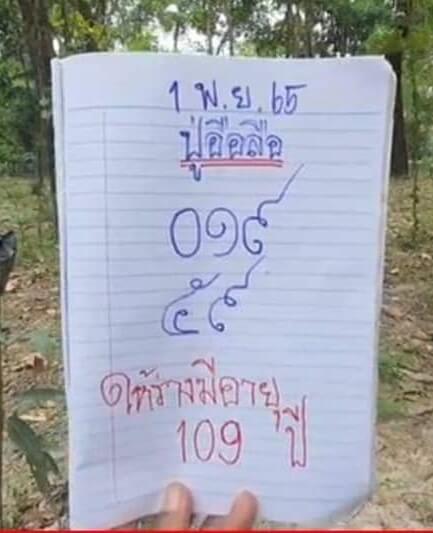 1 พ.ย. 65
ปู่อือลือ
๐๑๙
๕๙
ให้ร่างมีอายุ
109 ปี